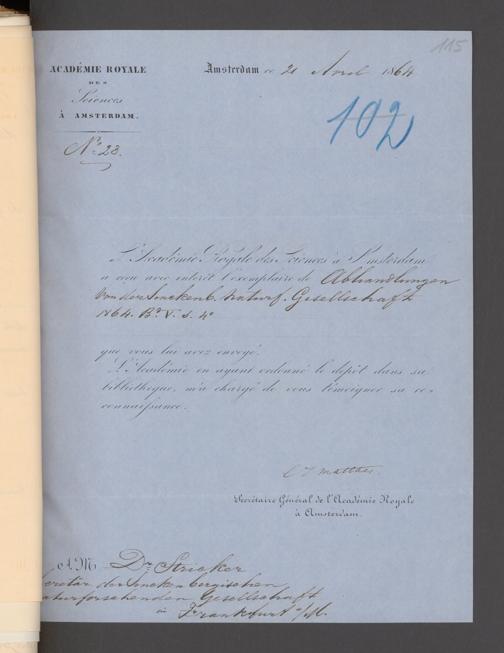 115
ACADÉMIE ROYALE
DES
Sciences
À AMSTERDAM.
Amsterdam ce 21 Avril 1864
102
No 28.
L'Académie Royale des Sciences à Amsterdam
a reçu avec intérêt l'exemplaire de Abhandlungen
von der Senckenb. Naturf. Gesellschaft
1864. Bd V. 4o
que vous lui avez envoyé.
L'Académie en ayant ordonné le dépôt dans sa
bibliothèque, m'a chargé de vous témoigner sa re-
connaissance.
C J Matthes.
Secrétaire Général de l'Académie Royale
à Amsterdam.
A M Dr. Stricker
cretär der Senckenbergischen
aturforschenden Gesellschaft
in Frankfurt a/M.